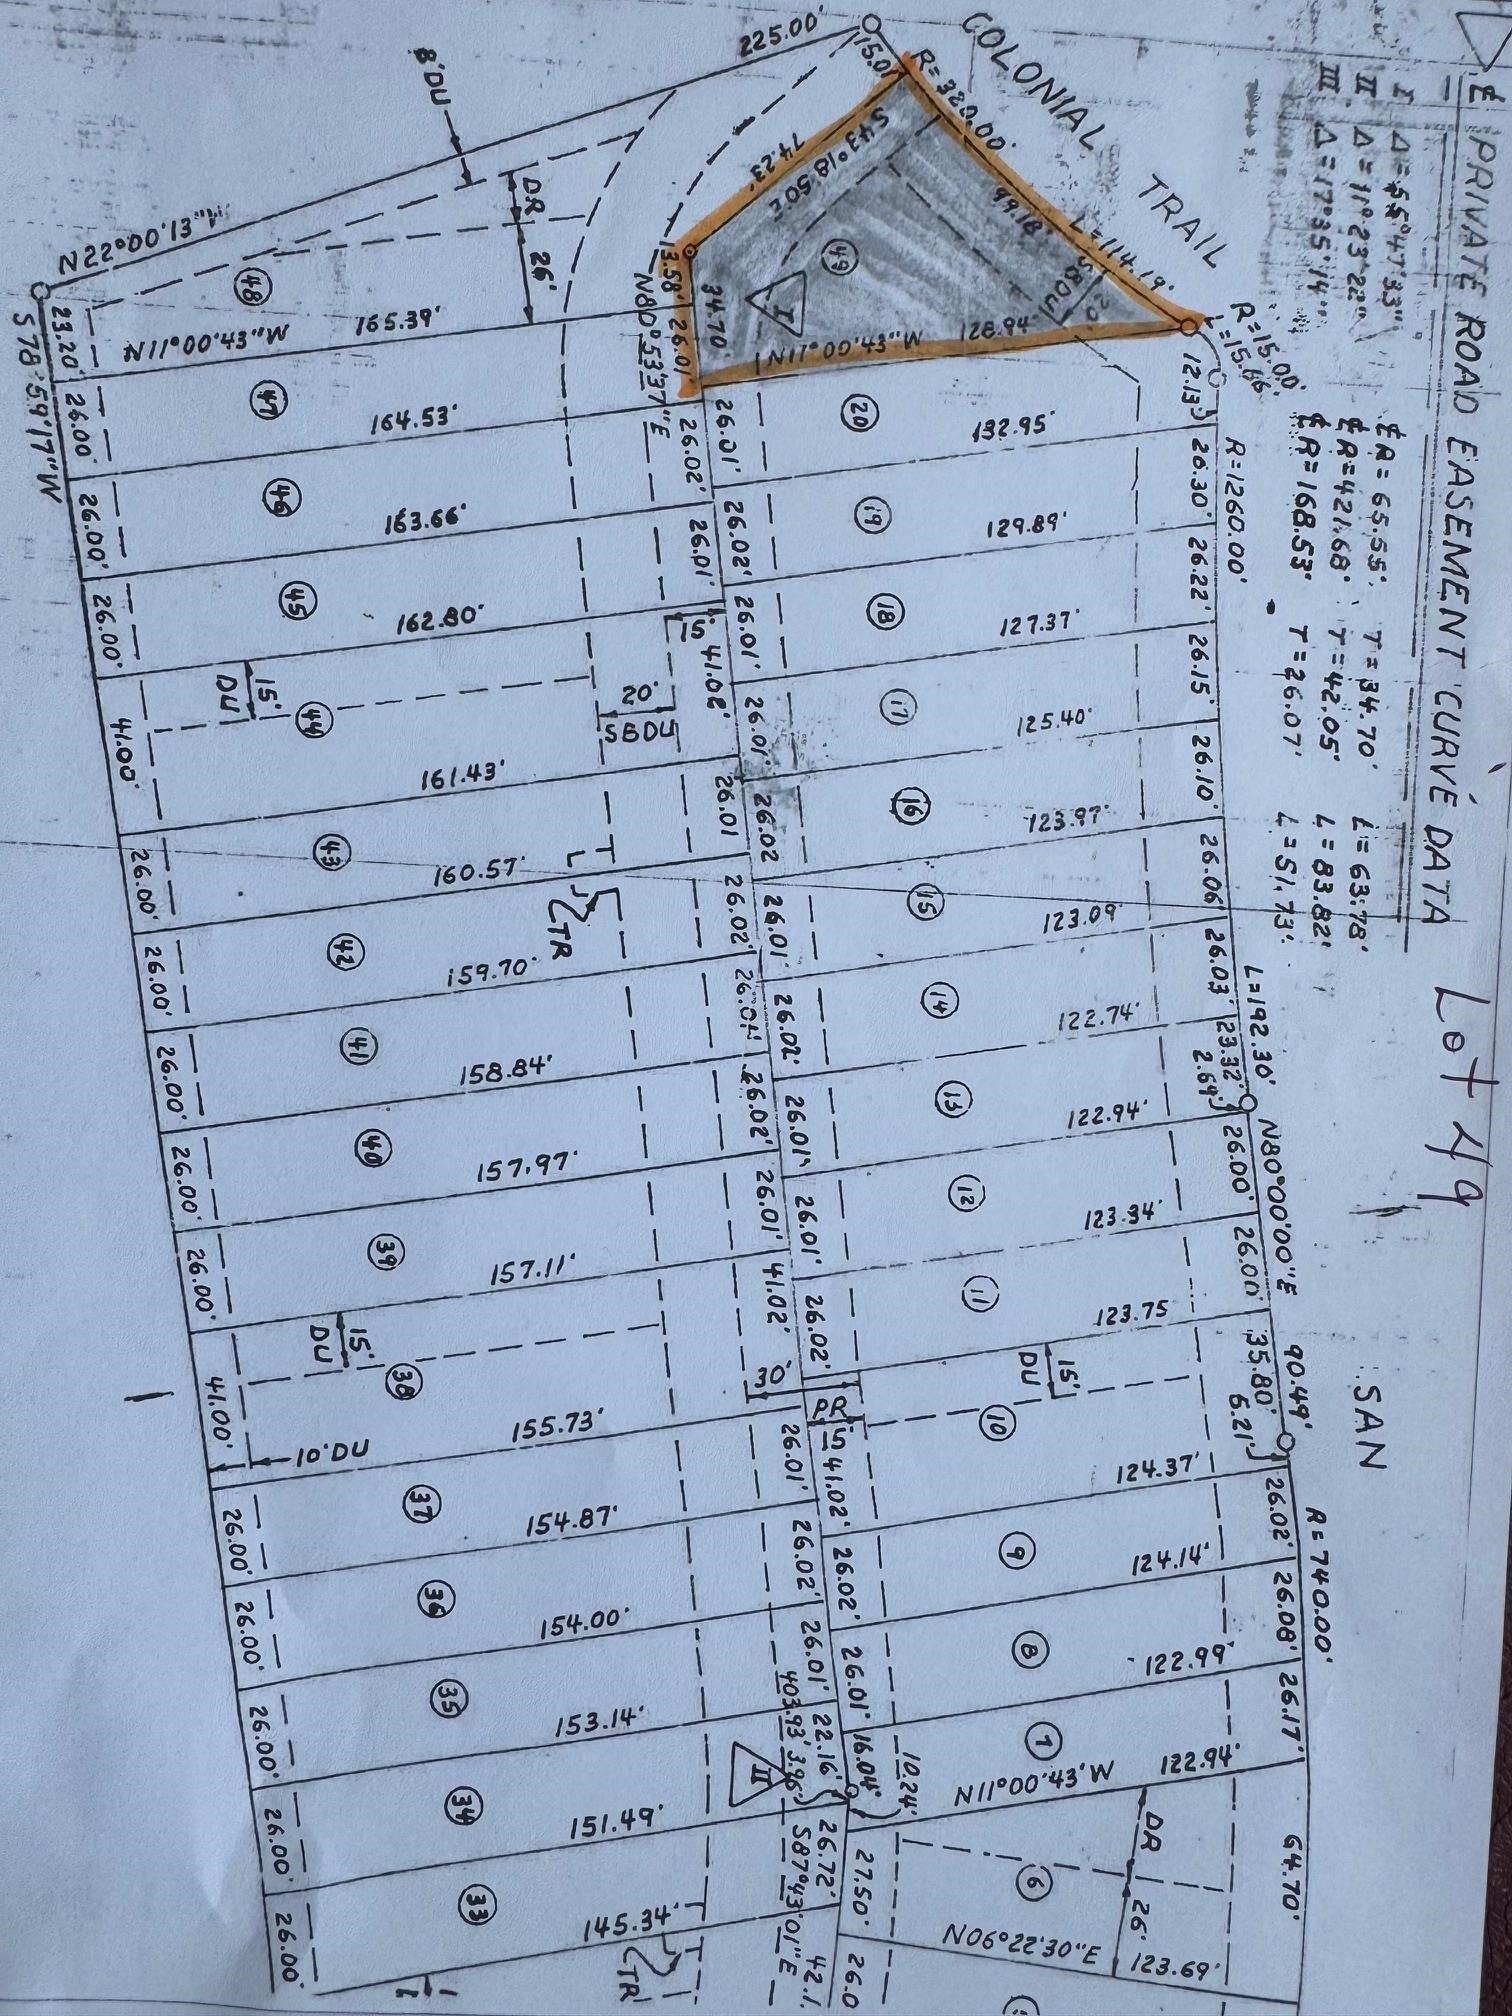 ℄ PRIVATE ROAD EASEMENT CURVE DATA
I Δ = 55°47'33" ℄R = 65.55' T = 34.70' L = 63.78'
II Δ = 11°23'22" ℄R = 421.68' T = 42.05' L = 83.82'
III Δ = 17°35'14" ℄R = 168.53' T = 26.07' L = 51.73'
Lot 49
COLONIAL TRAIL
SAN
R=320.00'
L=114.19'
R=15.00'
L=15.66'
R=1260.00'
L=192.30'
N80°00'00"E
90.49'
R=740.00'
12.13'
26.30'
26.22'
26.15'
26.10'
26.06'
26.03'
23.32'
2.69'
26.00'
26.00'
35.80'
5.21'
26.02'
26.08'
26.17'
64.70'
225.00'
15.01'
S43°18'50"E
74.23'
99.18'
20'
SBDU
49
I
34.70'
N11°00'43"W
128.94'
20
132.95'
19
129.89'
18
127.37'
17
125.40'
16
123.97'
15
123.09'
14
122.74'
13
122.94'
12
123.34'
11
123.75
15'
DU
10
124.37'
9
124.14'
8
122.99'
7
122.94'
N11°00'43"W
DR
26'
6
N06°22'30"E
123.69'
13.58'
26.01'
N80°53'37"E
26.01'
26.02'
26.01'
26.01'
26.02
26.01'
26.02'
26.01'
26.01'
26.02'
PR
15
41.02'
26.02'
26.01'
16.04'
10.24'
27.50'
26.0
26.02'
26.01'
15'
41.02'
26.01
26.02'
26.02'
26.01'
41.02'
30'
26.01'
26.02'
26.01'
22.16'
403.93'
3.96'
II
26.72'
S87°43'01"E
42.1
8'DU
DR
26'
N22°00'13"W
48
N11°00'43"W
165.39'
47
164.53'
46
163.66'
45
162.80'
15'
DU
44
20'
SBDU
161.43'
43
160.57'
TR
42
159.70'
41
158.84'
40
157.97'
39
157.11'
15'
DU
38
155.73'
10'DU
37
154.87'
36
154.00'
35
153.14'
34
151.49'
33
145.34'
TR
23.20'
S78°59'17"W
26.00'
26.00'
26.00'
41.00'
26.00'
26.00'
26.00'
26.00'
26.00'
41.00'
26.00'
26.00'
26.00'
26.00'
26.00'